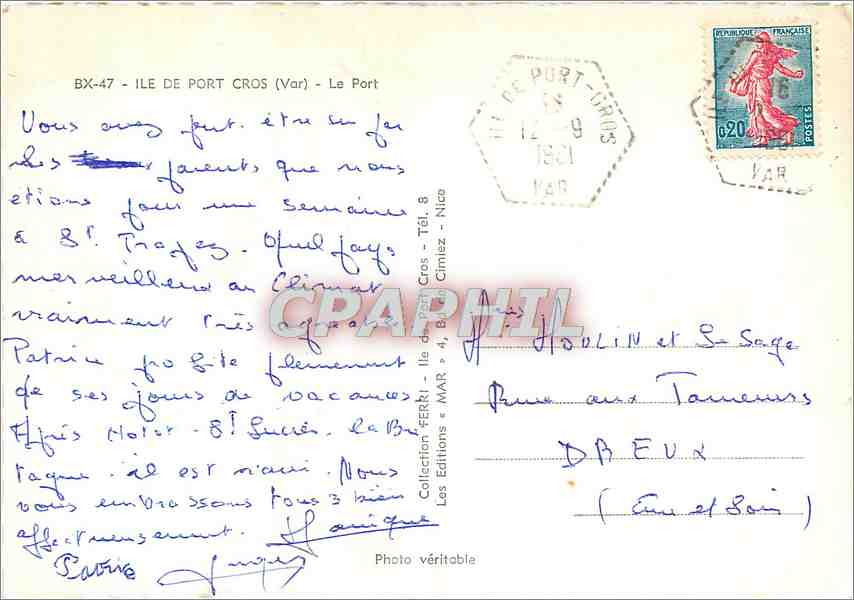 BX-47 - ILE DE PORT CROS (Var) - Le Port
Vous avez peut-être su par
les parents que nous
étions pour une semaine
à St Tropez. Quel pays
merveilleux au Climat
vraiment très agréable
Patrice profite pleinement
de ses jours de vacances
Après St la Bre
tagne. il est ravi. Nous
vous embrassons tous 3 bien
affectueusement. Monique
Patrice
Collection FERRI - Ile de Port Cros - Tél. 8
Les Editions « MAR » 4, Bd de Cimiez - Nice
Photo véritable
ILE DE PORT-CROS
12 - 9
VAR
REPUBLIQUE FRANÇAISE
0,20
POSTES
16
VAR
MOULIN et Le Sage
Rue aux Tanneurs
DREUX
(Eure et Loir)
CPAPHIL